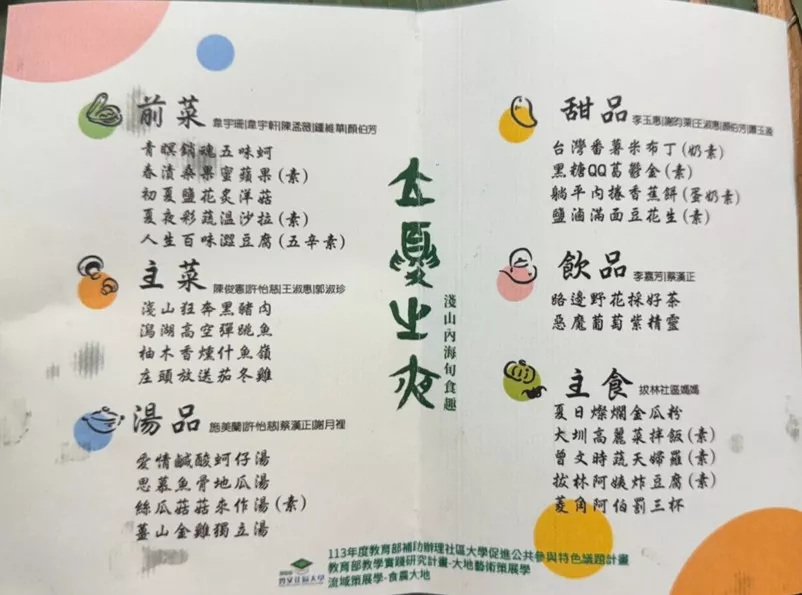 前菜
韋宇珊|韋宇軒|陳孟薇|鍾維華|顏伯芳
青暝銷魂五味蚵
春漬桑果蜜蘋果(素)
初夏鹽花炙洋菇
夏夜彩蔬溫沙拉(素)
人生百味澀豆腐(五辛素)
主菜
陳俊憲|許怡慈|王淑惠|郭淑珍
淺山狂奔黑豬肉
潟湖高空彈跳魚
柚木香燻什魚嶺
庄頭放送茄冬雞
湯品
施美蘭|許怡慈|蔡漢正|謝月裡
愛情鹹酸蚵仔湯
思慕魚骨地瓜湯
絲瓜菇菇來作湯(素)
薑山金雞獨立湯
立夏之夜
淺山內海旬食趣
甜品
李玉惠|謝昀潔|王淑惠|顏伯芳|蕭玉盈
台灣番薯米布丁(奶素)
黑糖QQ葛鬱金(素)
躺平內捲香蕉餅(蛋奶素)
鹽滷滿面豆花生(素)
飲品
李嘉芳|蔡漢正
路邊野花採好茶
惡魔葡萄紫精靈
主食
拔林社區媽媽
夏日燦爛金瓜粉
大圳高麗菜拌飯(素)
曾文時蔬天婦羅(素)
拔林阿姨炸豆腐(素)
菱角阿伯罰三杯
113年度教育部補助辦理社區大學促進公共參與特色議題計畫
教育部教學實踐研究計畫-大地藝術策展學
流域策展學-食農大地